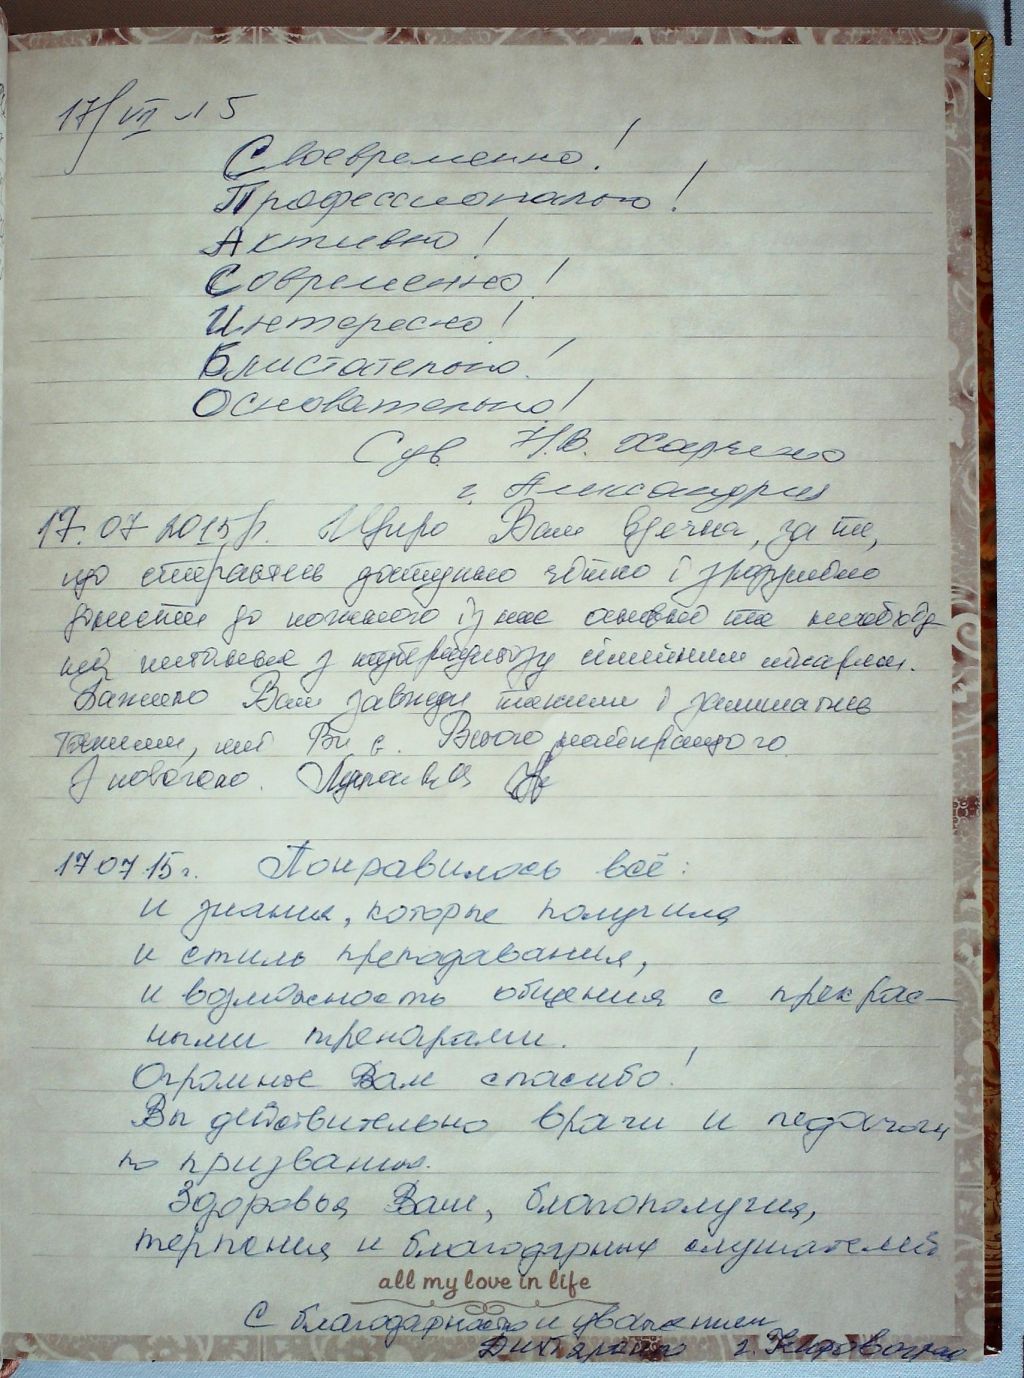 17/VII 15
Своевременно!
Профессионально!
Активно!
Современно!
Интересно!
Блистательно!
Основательно!
Н.В. Харченко
г. Александрия
17.07.2015р. Щиро Вам вдячна, за те,
що стараєтесь доступно чітко і
донести до кожного із нас та необхід-
ні питання з сімейним лікарям.
Бажаю Вам завжди такими і залишатись
такими, які Ви є. Всього найкращого
З повагою.
17 07 15г. Понравилось всё:
и знания, которые получила
и стиль преподавания,
и возможность общения с прекрас-
ными тренерами.
Огромное Вам спасибо!
Вы действительно врачи и педагоги
по призванию.
Здоровья Вам, благополучия,
терпения и благодарных слушателей
all my love in life
С благодарностью и уважением
г. Кировоград